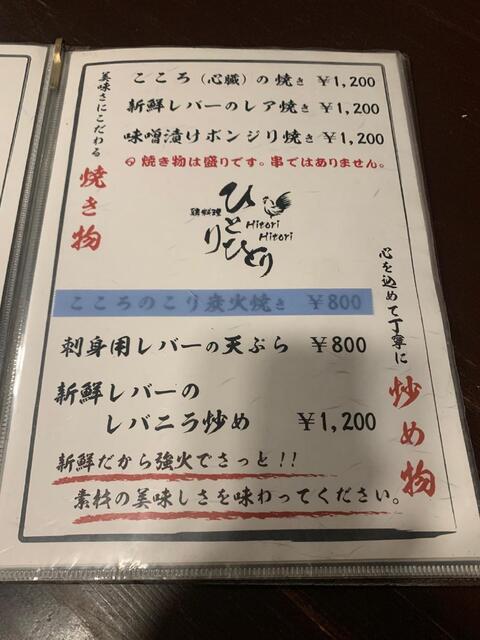 美味さにこだわる
焼き物
こころ（心臓）の焼き ￥1,200
新鮮レバーのレア焼き ￥1,200
味噌漬けボンジリ焼き ￥1,200
焼き物は盛りです。串ではありません。
鶏料理
ひとりひとり
Hitori
Hitori
心を込めて丁寧に
炒め物
こころのこり炭火焼き ￥800
刺身用レバーの天ぷら ￥800
新鮮レバーの
レバニラ炒め ￥1,200
新鮮だから強火でさっと！！
素材の美味しさを味わってください。